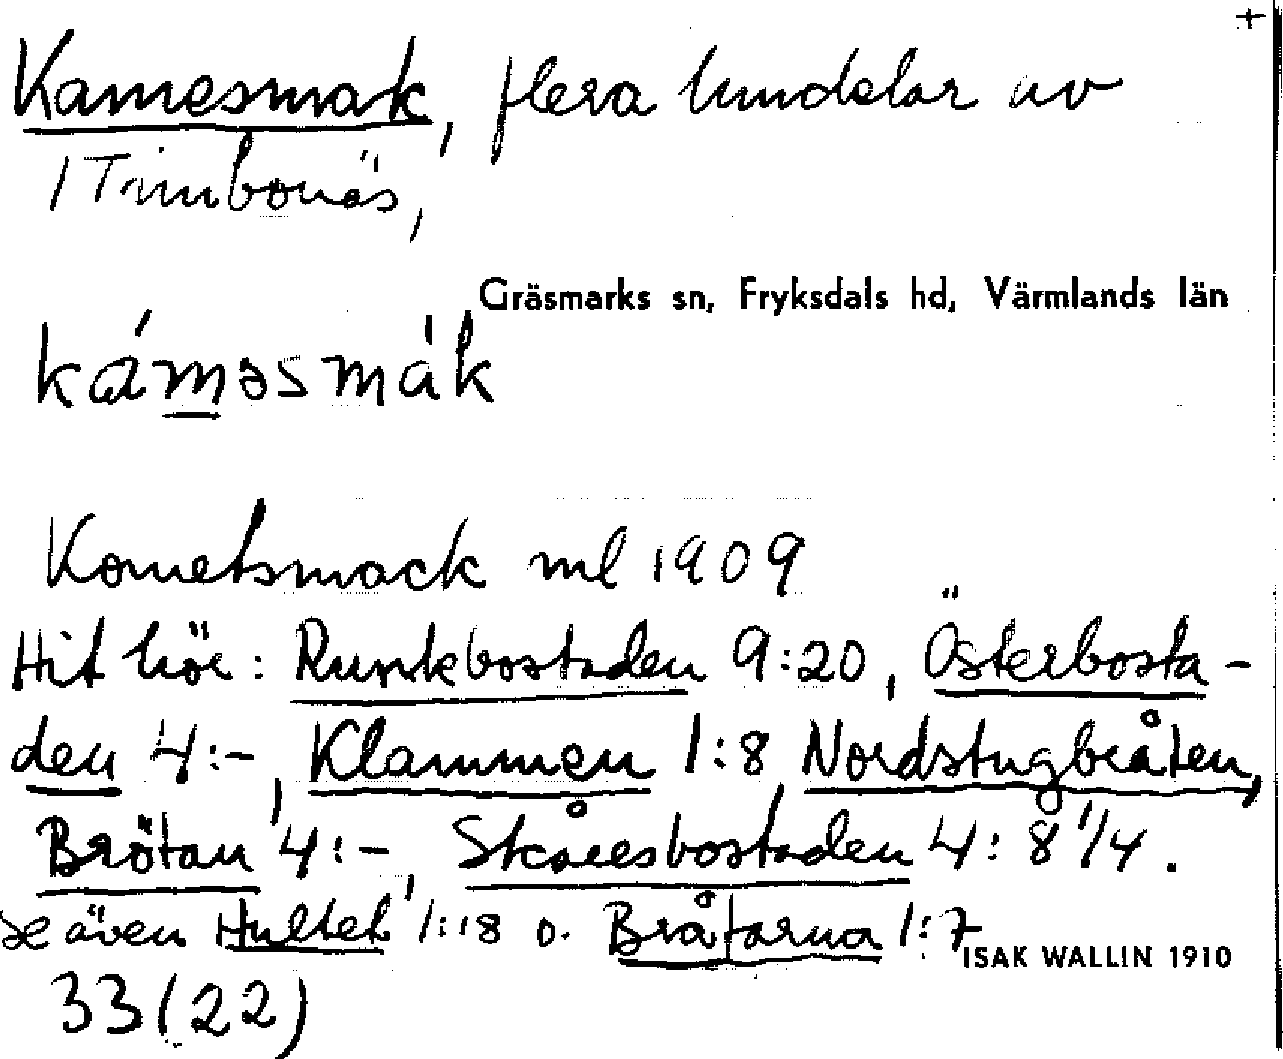 +
Kamesmak, flera lundelar av
1 Timbonäs,
Gräsmarks sn, Fryksdals hd, Värmlands län
káməsmák
Kometsmack ml 1909
Hit hör: Runkbostaden 9:20, Österbosta-
den 4:-, Klammen 1:8, Nordstugbråten,
Brötan 4:-, Skåresbostaden 4:8 1/4.
se även Hultet 1:18 o. Bråtarna 1:7
ISAK WALLIN 1910
33(22)